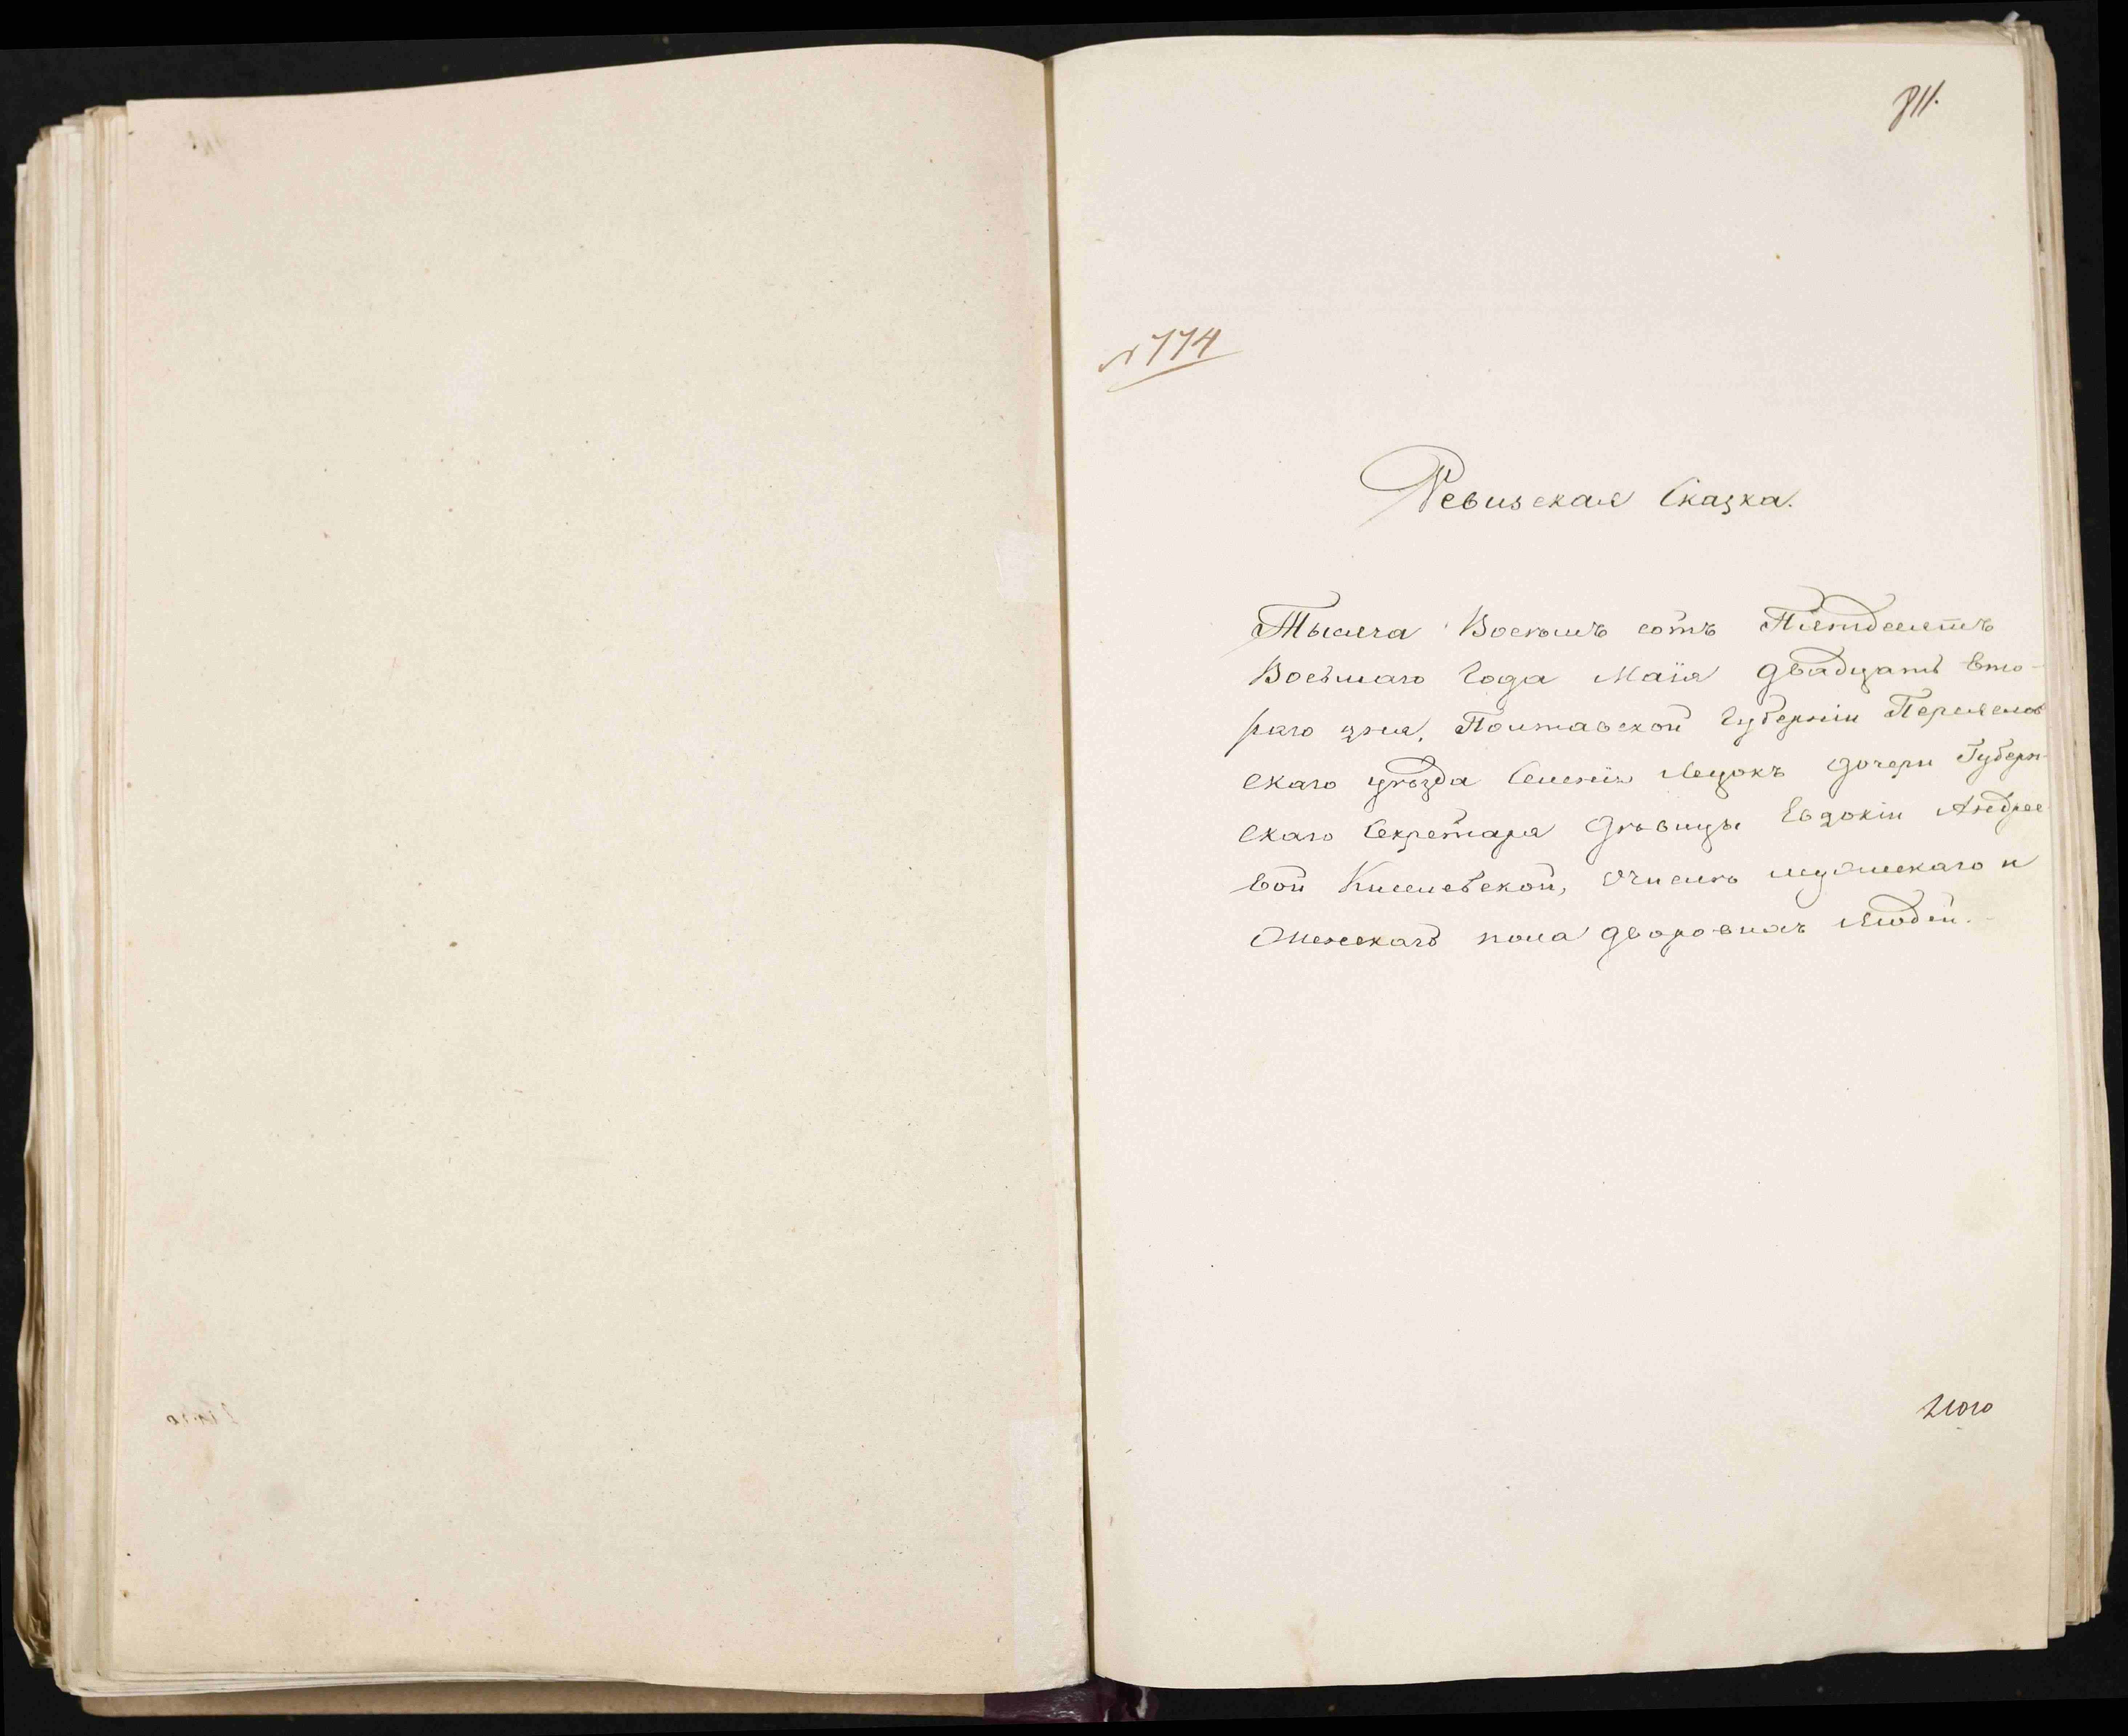 811.
№ 114
Ревизская Сказка.
Тысяча Восемь сотъ Пятдесятъ
Восьмаго Года Маія двадцать вто-
раго дня, Полтавской Губерніи Переяслов
скаго уѣзда Селенія Лецокъ дочери Губерн-
скаго Секретаря Дѣвицы Евдокіи Андрее
вой Киселевской, О числѣ мужескаго и
Женскаго пола дворовыхъ людей.